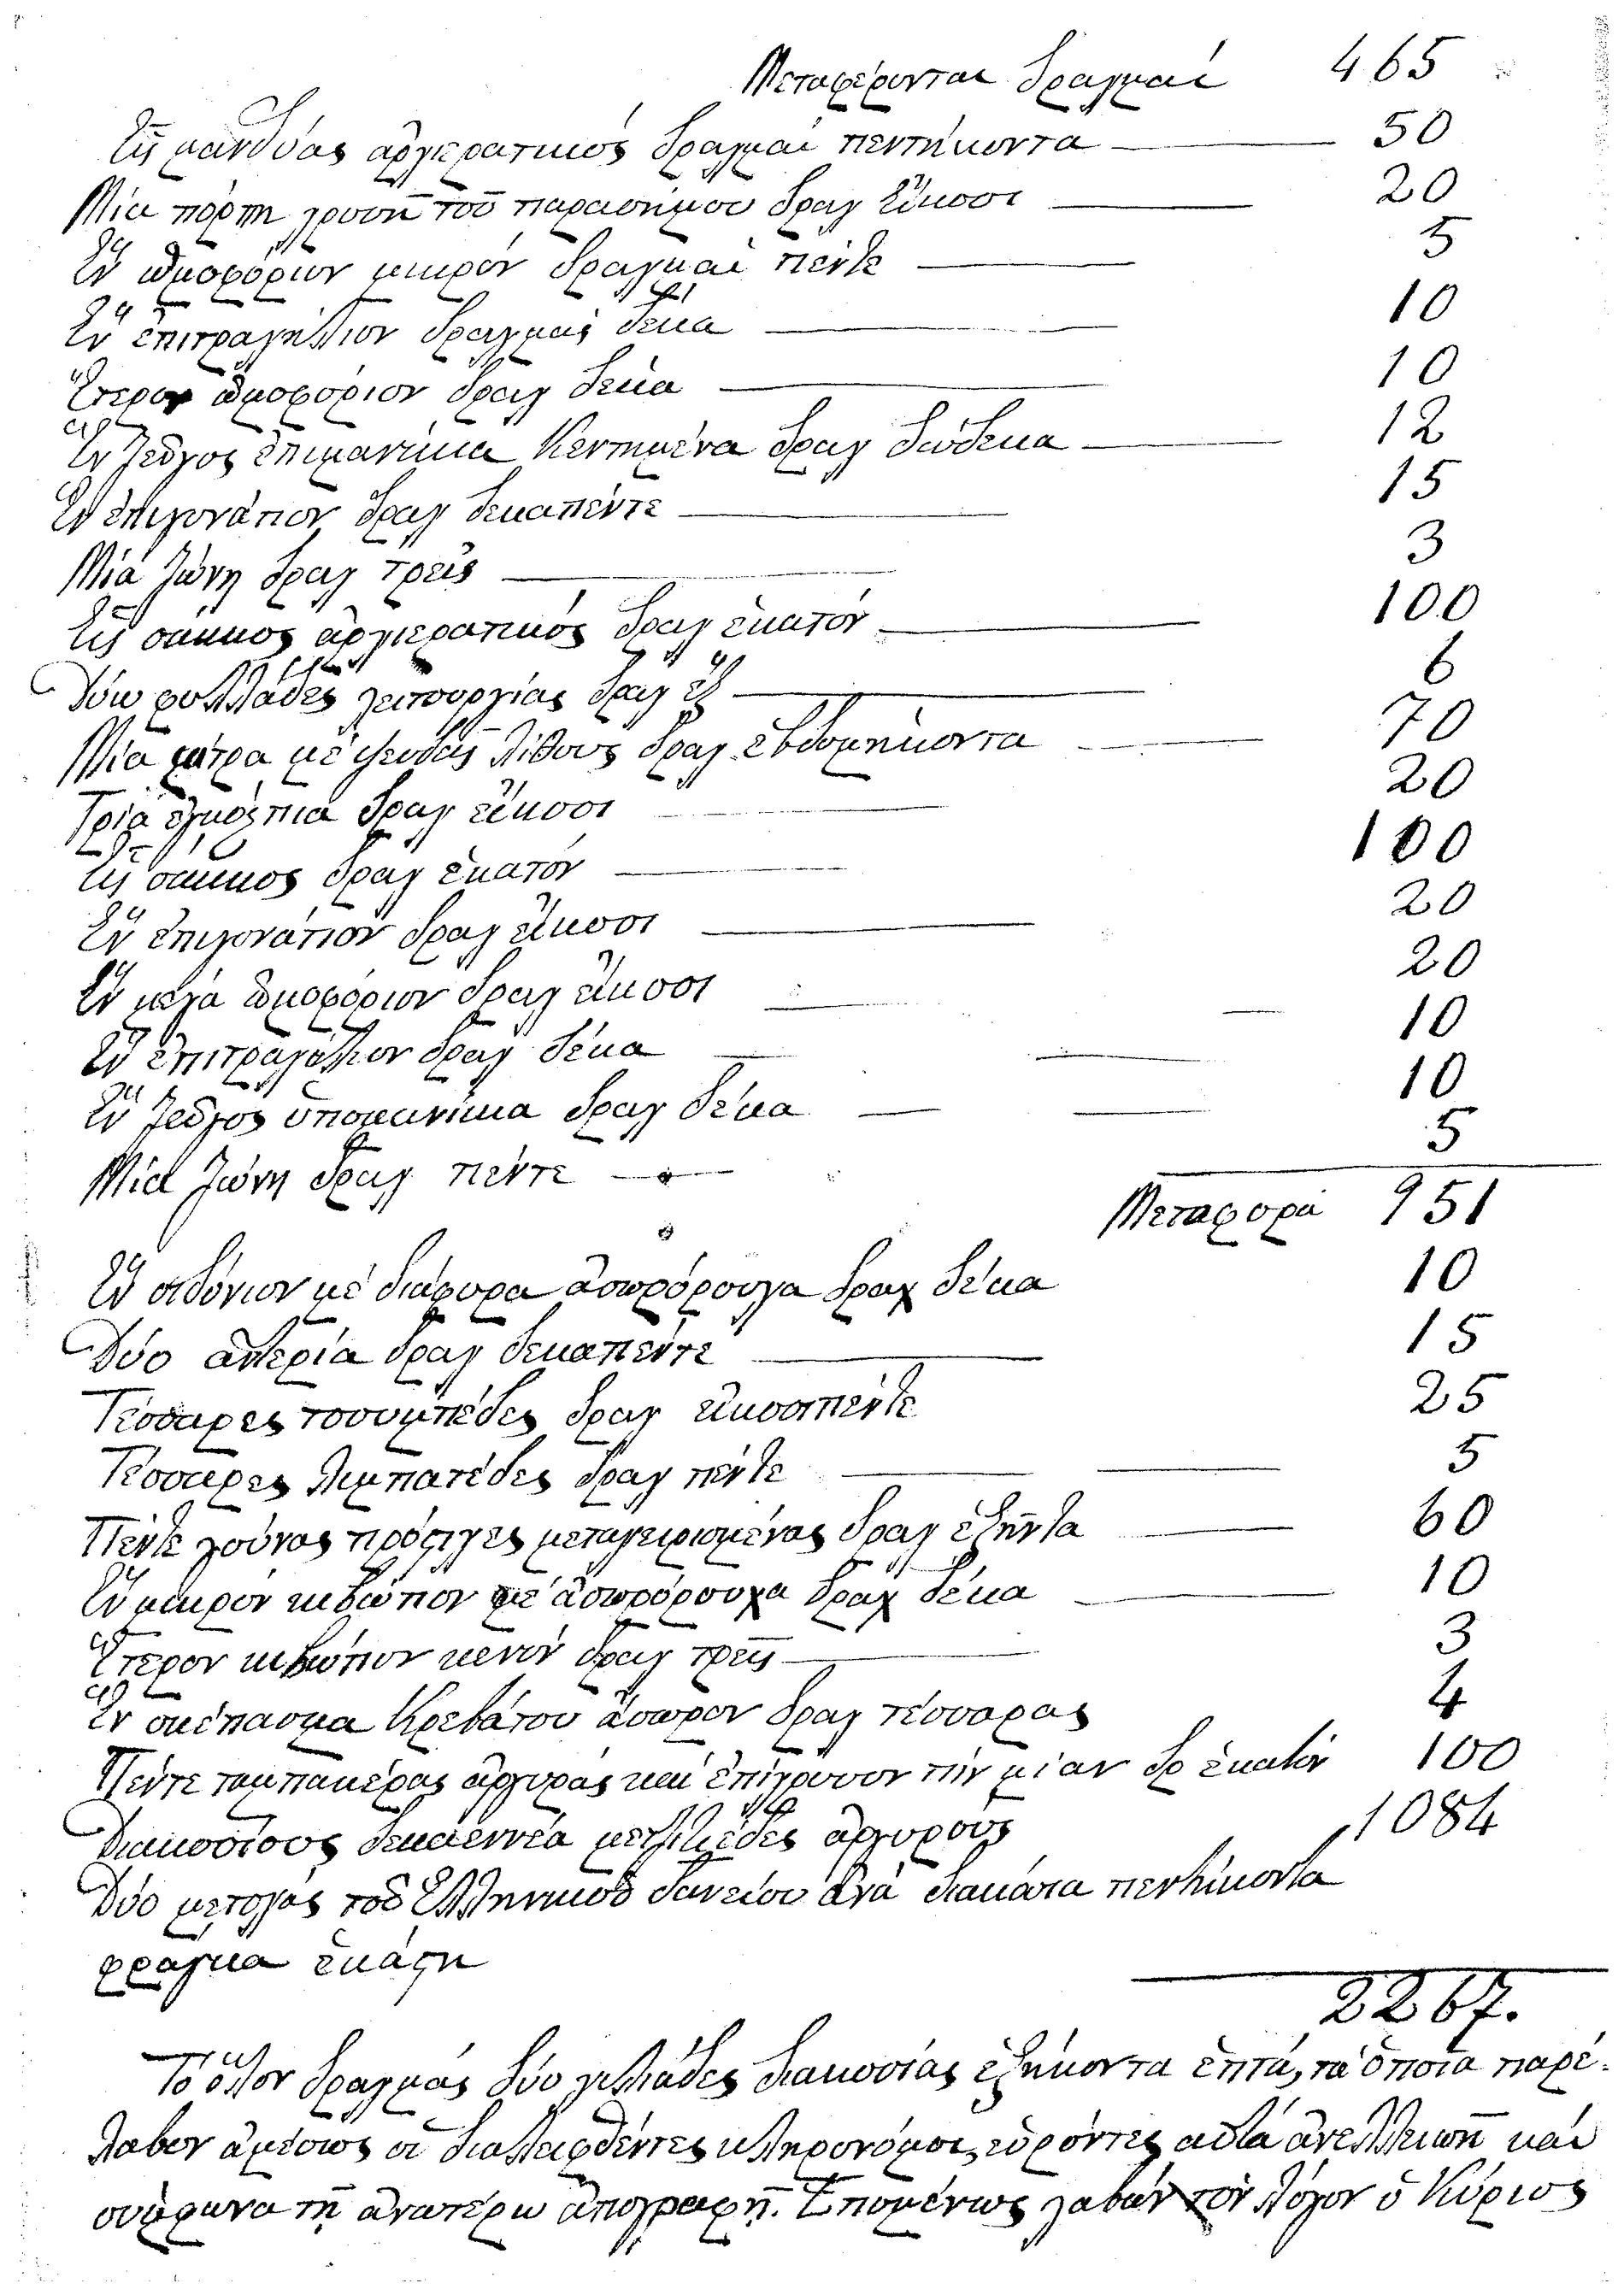 Μεταφέρονται δραχμαί 465
Εἷς μανδύας ἀρχιερατικός δραχμαί πεντήκοντα 50
Μία πόρπη χρυσῆ τοῦ παρασήμου δραχ εἴκοσι 20
Ἓν ὠμοφόριον μικρόν δραχμαί πέντε 5
Ἓν ἐπιτραχήλιον δραχμάς δέκα 10
Ἕτερον ὠμοφόριον δραχ δέκα 10
Ἓν ζεῦγος ἐπιμανίκια κεντημένα δραχ δώδεκα 12
Ἓν ἐπιγονάτιον δραχ δεκαπέντε 15
Μία ζώνη δραχ τρεῖς 3
Εἷς σάκκος ἀρχιερατικός δραχ ἑκατόν 100
Δύω φυλλάδες λειτουργίας δραχ ἕξ 6
Μία μίτρα μέ ψευδεῖς λίθους δραχ ἑβδομήκοντα 70
Τρία ἐγκόλπια δραχ εἴκοσι 20
Εἷς σάκκος δραχ ἑκατόν 100
Ἓν ἐπιγονάτιον δραχ εἴκοσι 20
Ἓν μέγα ὠμοφόριον δραχ εἴκοσι 20
Ἓν ἐπιτραχήλιον δραχ δέκα 10
Ἓν ζεῦγος ὑπομανίκια δραχ δέκα 10
Μία ζώνη δραχ πέντε 5
Μεταφορά 951
Ἓν σιδόνιον μέ διάφορα ἀσπρόρουχα δραχ δέκα 10
Δύο ἀντερία δραχ δεκαπέντε 15
Τέσσαρες τσουμπέδες δραχ εἰκοσιπέντε 25
Τέσσαρες δραχ πέντε 5
Πέντε γούνας μεταχειρισμένας δραχ ἑξῆντα 60
Ἓν μικρόν κιβώτιον μέ ἀσπρόρουχα δραχ δέκα 10
Ἕτερον κιβώτιον κενόν δραχ τρεῖς 3
Ἓν σκέπασμα κρεβάτου ἄσπρον δραχ τέσσαρας 4
Πέντε ταμπακέρας ἀργυράς καί ἐπίχρυσον τήν μίαν δρ ἑκατόν 100
Διακοσίους δεκαεννέα μετζιτιέδες ἀργυρούς 1084
Δύο μετοχάς τοῦ Ἑλληνικοῦ δανείου ἀνά διακόσια πεντήκοντα
φράγκα ἑκάστη
2267.
Τό ὅλον δραχμάς δύο χιλιάδες διακοσίας ἑξήκοντα ἑπτά, τά ὁποῖα παρέ-
λαβον ἀμέσως οἱ διαληφθέντες κληρονόμοι, εὑρόντες αὐτά ἀνελλειπῆ καί
σύμφωνα τῇ ἀνωτέρω ἀπογραφῇ. Ἑπομένως λαβών τόν λόγον ὁ Κύριος